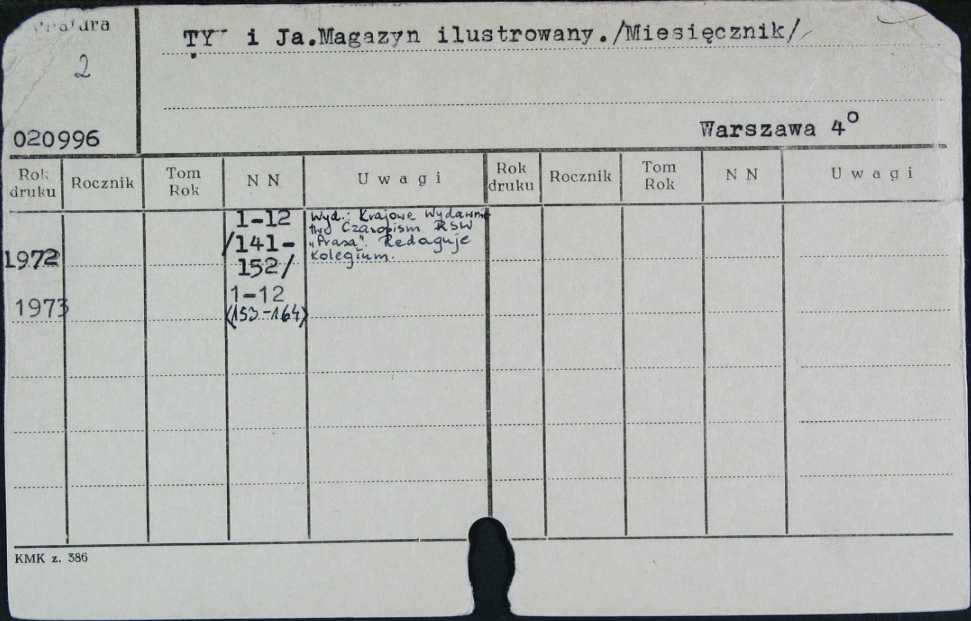 TY i Ja.Magazyn ilustrowany./Miesięcznik/
2
020996
Warszawa 4°
Rok druku Rocznik Tom Rok N N U w a g i Rok druku Rocznik Tom Rok N N U w a g i
1972 1-12 /141-152/ Wyd.: Krajowe Wydawnictwo Czasopism RSW „Prasa". Redaguje Kolegium.
1973 1-12 (153-164)
KMK z. 386